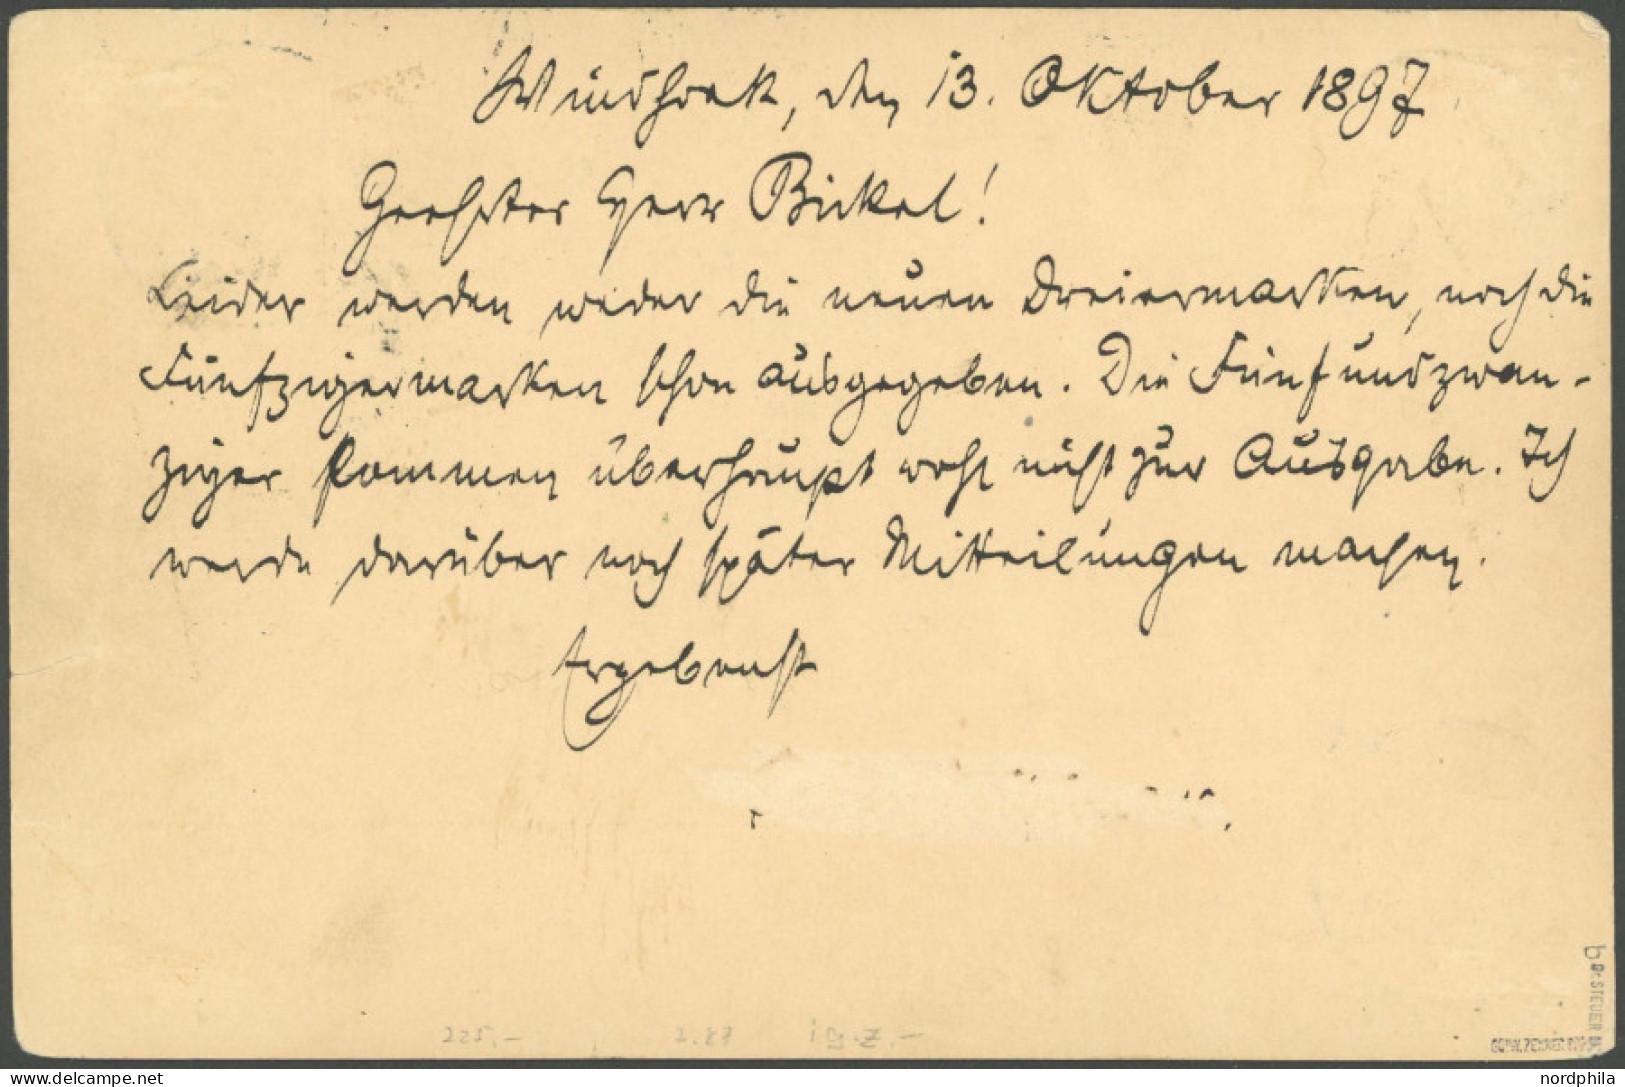 Windhoek, den 13. Oktober 1897
Geehrter Herr Bickel!
Leider werden weder die neuen Dreiermarken, noch die
Fünfzigermarken schon ausgegeben. Die Fünfundzwan-
ziger kommen überhaupt wohl nicht zur Ausgabe. Ich
werde darüber noch später Mitteilungen machen.
Ergebenst
225.-
2.87
b Dr. STEUER
delcampe.net
nordphila